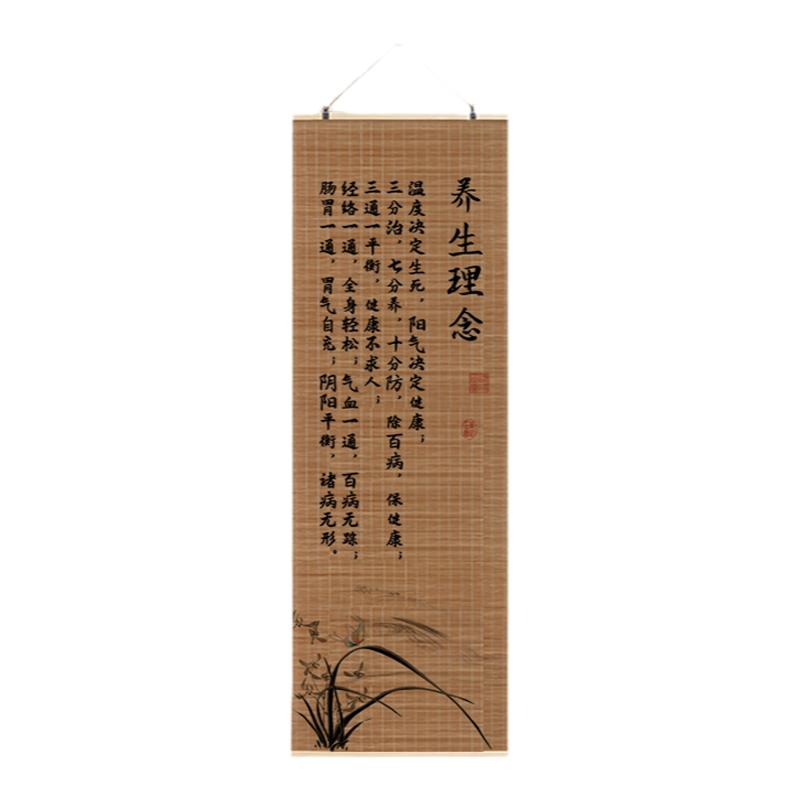 养生理念
温度决定生死，阳气决定健康；
三分治，七分养，十分防，除百病，保健康；
三通一平衡，健康不求人；
经络一通，全身轻松；气血一通，百病无踪；
肠胃一通，胃气自充；阴阳平衡，诸病无形。